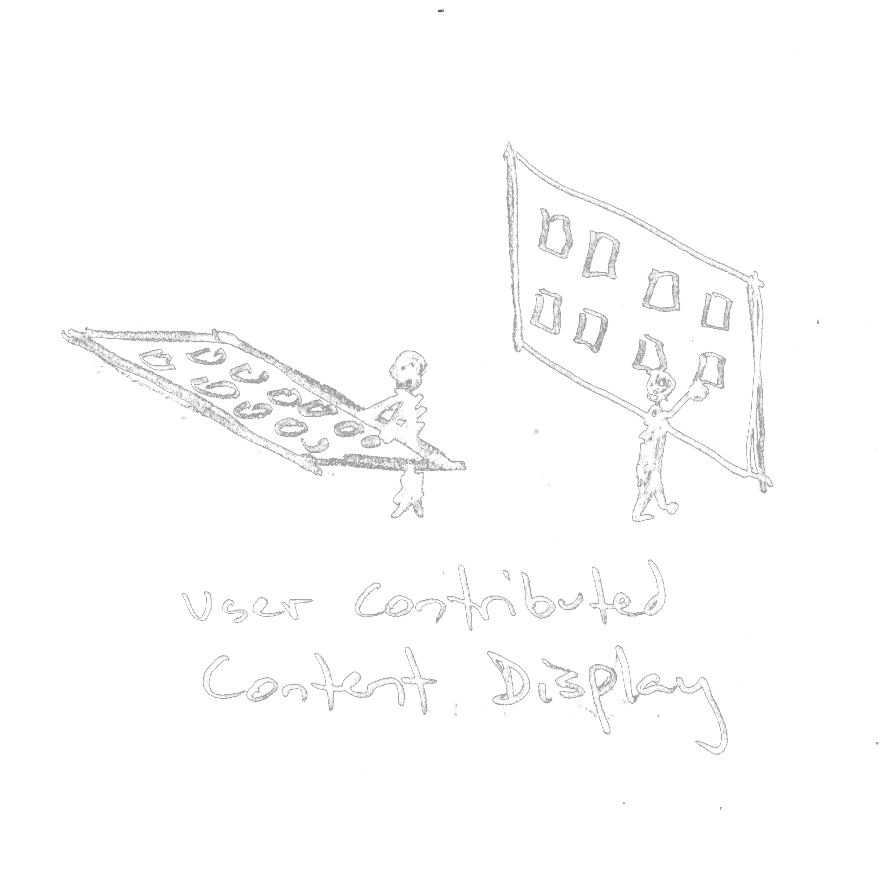 User Contributed
Content Display